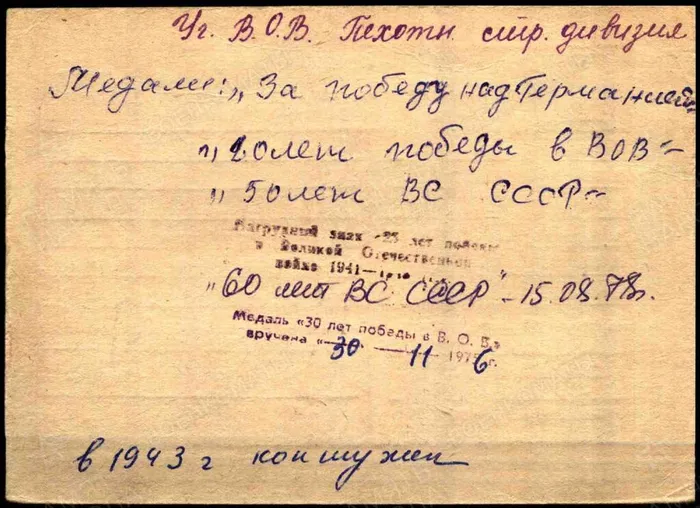 Уг. В.О.В. Пехотн. стр. дивизия
Медали: „За победу над Германией"
„20 лет победы в ВОВ"
„50 лет ВС СССР"
Нагрудный знак «25 лет победы
в Великой Отечественной
войне 1941—
„60 лет ВС СССР" - 15.08.78г.
Медаль «30 лет победы в В. О. В.»
вручена «30 11 1976 г.
в 1943 г контужен